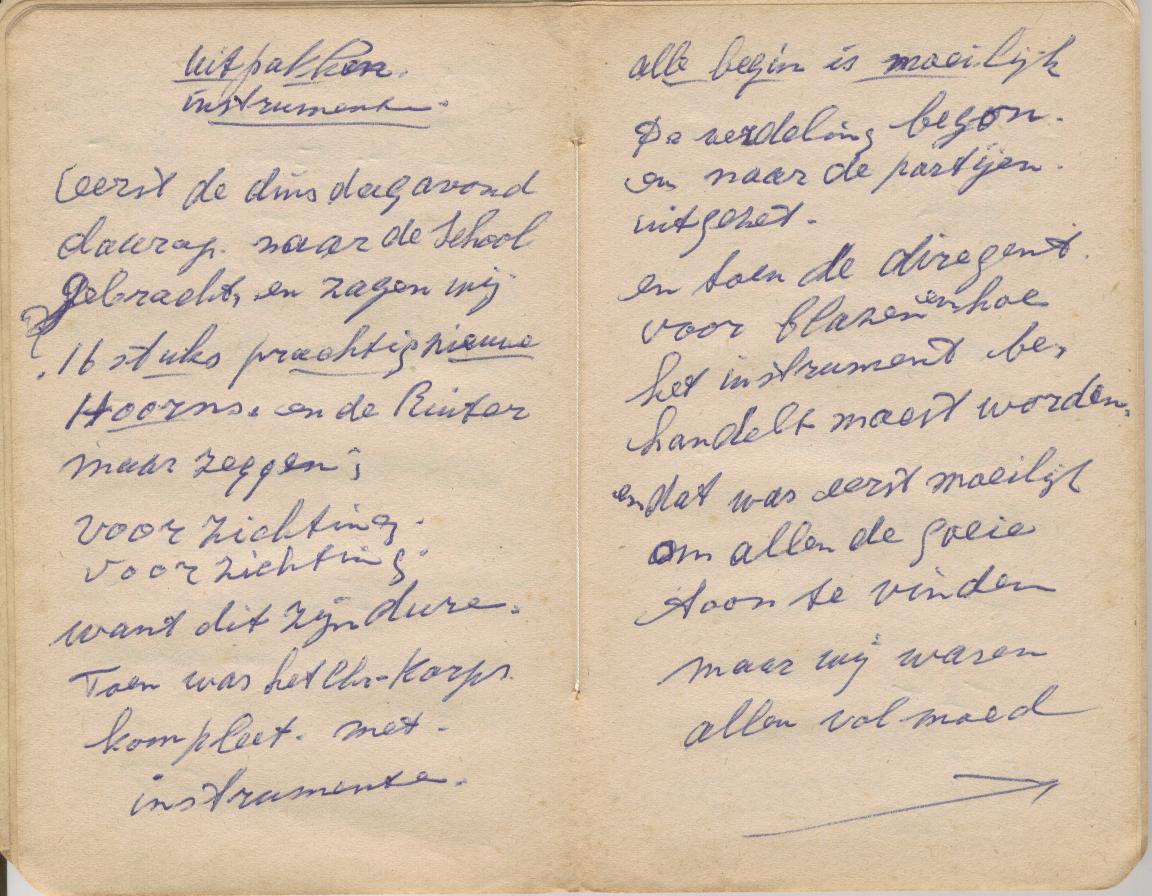 uitpakken.
instrumente.
eerst de dinsdagavond
daarop. naar de School
gebracht, en zagen wij
16 stuks prachtig nieuwe
Hoorns. en de Ruiter
maar zeggen;
voorzichting.
voorzichting.
want dit zijn dure.
Toen was het Chr-Korps
kompleet. met.
instrumente.
alle begin is moeilijk
De verdeling begon.
en naar de partijen.
uitgezet.
en toen de diregent.
voor blazen en hoe
het instrument be,
handelt moest worden,
en dat was eerst moeilijk
om allen de goeie
toon te vinden
maar wij waren
allen vol moed